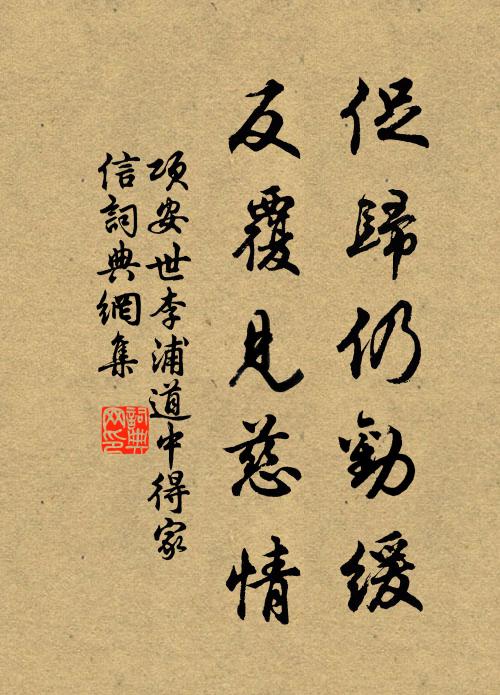 促歸仍勸緩
反覆見慈情
項安世李浦道中得家
信詞典網集
詞典網印